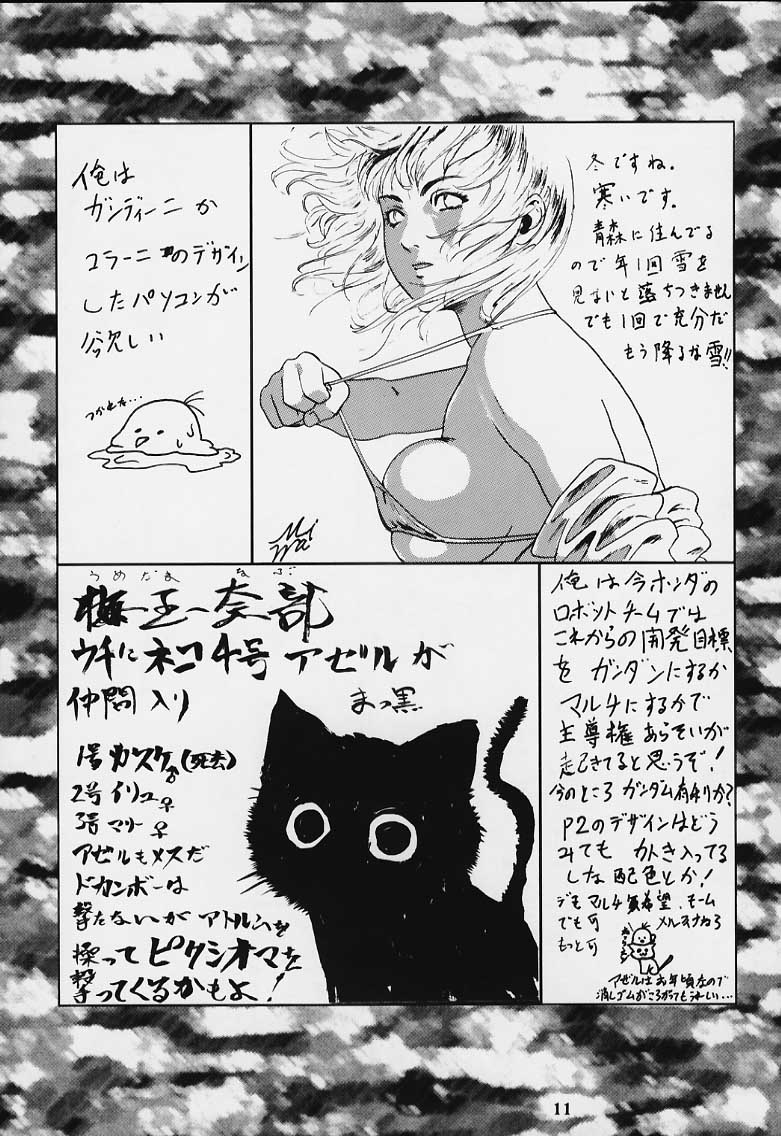 俺は
ガンディーニか
コラーニのデザイン
したパソコンが
欲しい
つかれた…
冬ですね。
寒いです。
青森に住んでる
ので年1回雪を
見ないと落ちつきません
でも1回で充分だ
もう降るな雪!!
うめだま なぶ
梅玉奈部
ウチにネコ4号アゼルが
仲間入り
まっ黒
1号カスケ♂(死去)
2号イリュ♀
3号マリー♀
アゼルもメスだ
ドカンボーは
撃たないがアトルムを
操ってピクシオマを
撃ってくるかもよ!
俺は今ホンダの
ロボットチームでは
これからの開発目標
をガンダンにするか
マルチにするかで
主導権あらそいが
起きてると思うぞ!
今のところガンダム有利か?
P2のデザインはどう
みても 入ってる
しな配色とか!
デモマルチ無希望、モーム
でも可
もっと可
アゼルはお年頃なので
消しゴムがころがってもうれしい…
11